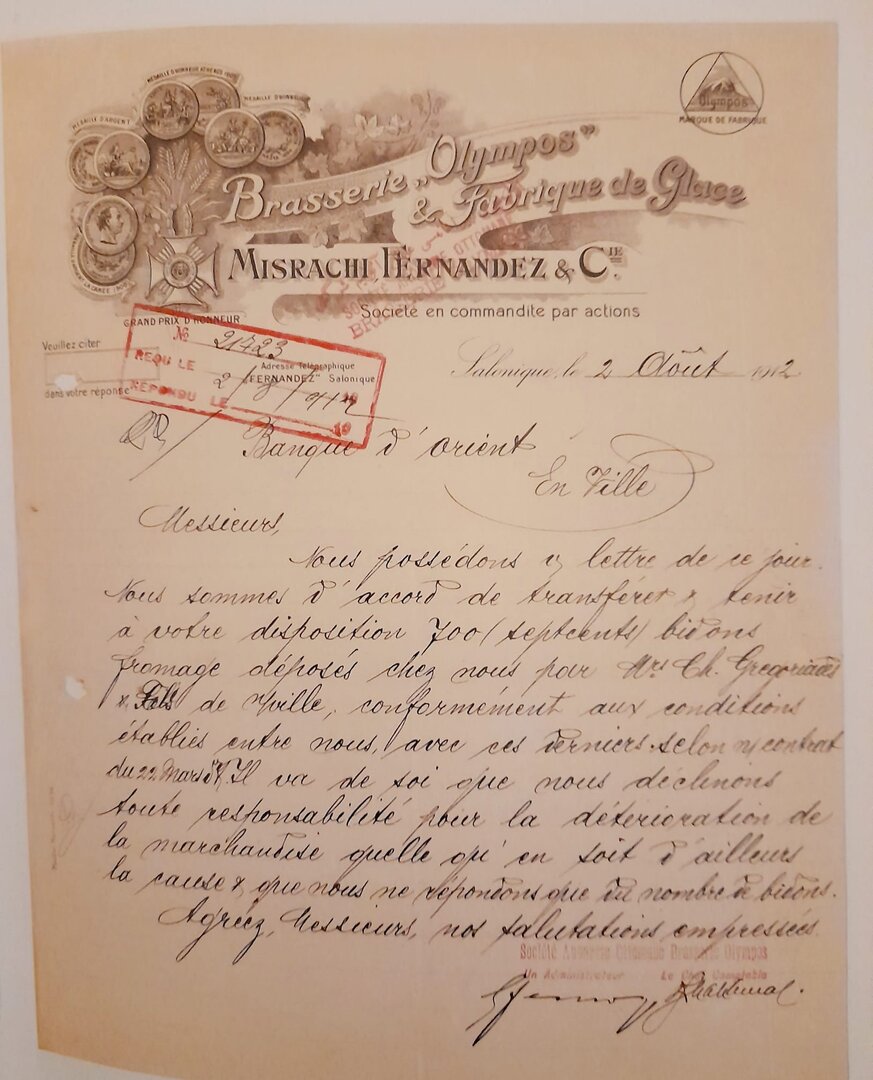 MEDAILLE D'HONNEUR ATHENES
MEDAILLE D'HONNEUR
MEDAILLE D'ARGENT
Olympos
MARQUE DE FABRIQUE
Brasserie „Olympos”
& Fabrique de Glace
MISRACHI FERNANDEZ & CIE.
Société en commandite par actions
GRAND PRIX D'HONNEUR
Veuillez citer
dans votre réponse
№ 21423
REÇU LE 2/8/1912
RÉPONDU LE 19
Adresse Télégraphique
"FERNANDEZ" Salonique
Salonique, le 2 Août 1912
Banque d'Orient
En Ville
Messieurs,
Nous possédons v/ lettre de ce jour.
Nous sommes d'accord de transférer & tenir
à votre disposition 700 (septcents) bidons
fromage déposés chez nous par Mrs Ch. Gregoriades
& Fils de n/ville, conformément aux conditions
établies entre nous, avec ces derniers selon n/ contrat
du 22 Mars d/. Il va de soi que nous déclinons
toute responsabilité pour la détérioration de
la marchandise quelle qu'en soit d'ailleurs
la cause & que nous ne répondons que du nombre de bidons.
Agréez, Messieurs, nos salutations empressées.
Société Anonyme Ottomane Brasserie Olympos
Un Administrateur Le Chef Comptable